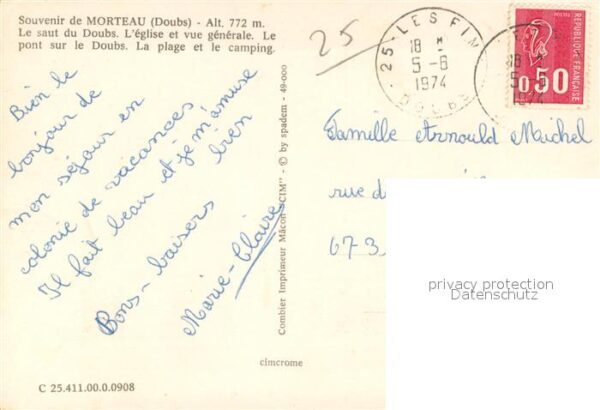 Souvenir de MORTEAU (Doubs) - Alt. 772 m.
Le saut du Doubs. L'église et vue générale. Le
pont sur le Doubs. La plage et le camping.
25
25 - LES FIN
18 H
5-8
1974
DOUBS
REPUBLIQUE FRANÇAISE
0,50
POSTES
Bien le
bonjour de
mon séjour en
colonie de vacances
Il fait beau et je m'amuse
bien
Bons - baisers
Marie-Claire
Combier Imprimeur Mâcon "CIM" - © by spadem - 49-000
Famille Arnould Michel
rue d
67-3
privacy protection
Datenschutz
cimcrome
C 25.411.00.0.0908